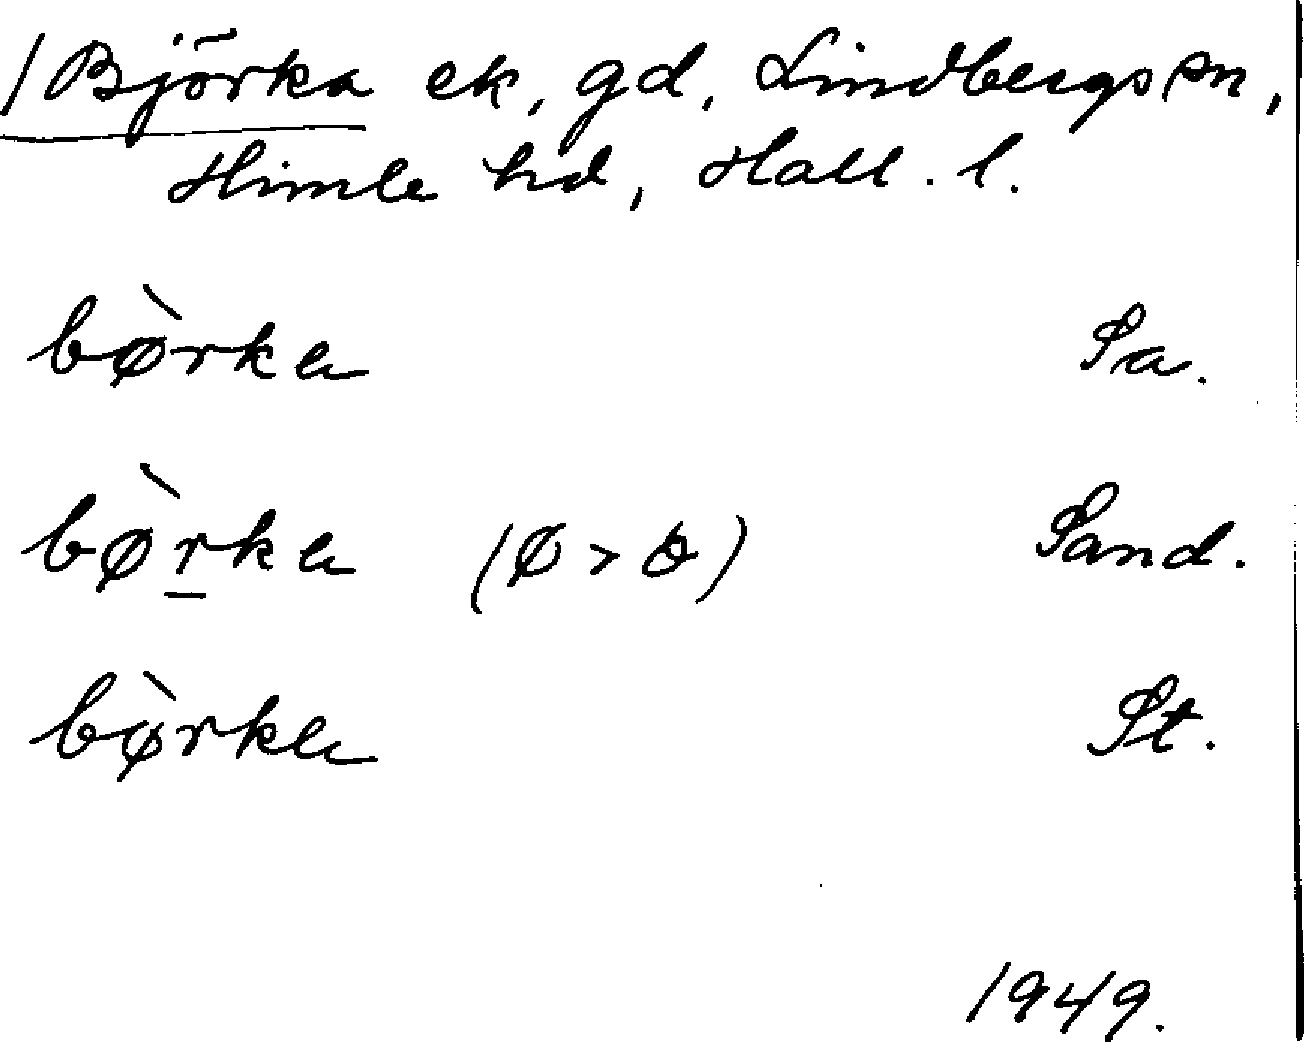 /Björka ek, gd, Lindbergs sn,
Himle hd, Hall. l.
bø̀rka Sa.
bø̀r̲ka (ø > ɵ) Sand.
bø̀rka St.
1949.